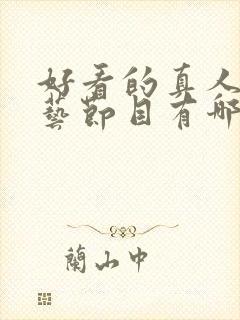 好看的真人
藝節目有哪
蘭山中